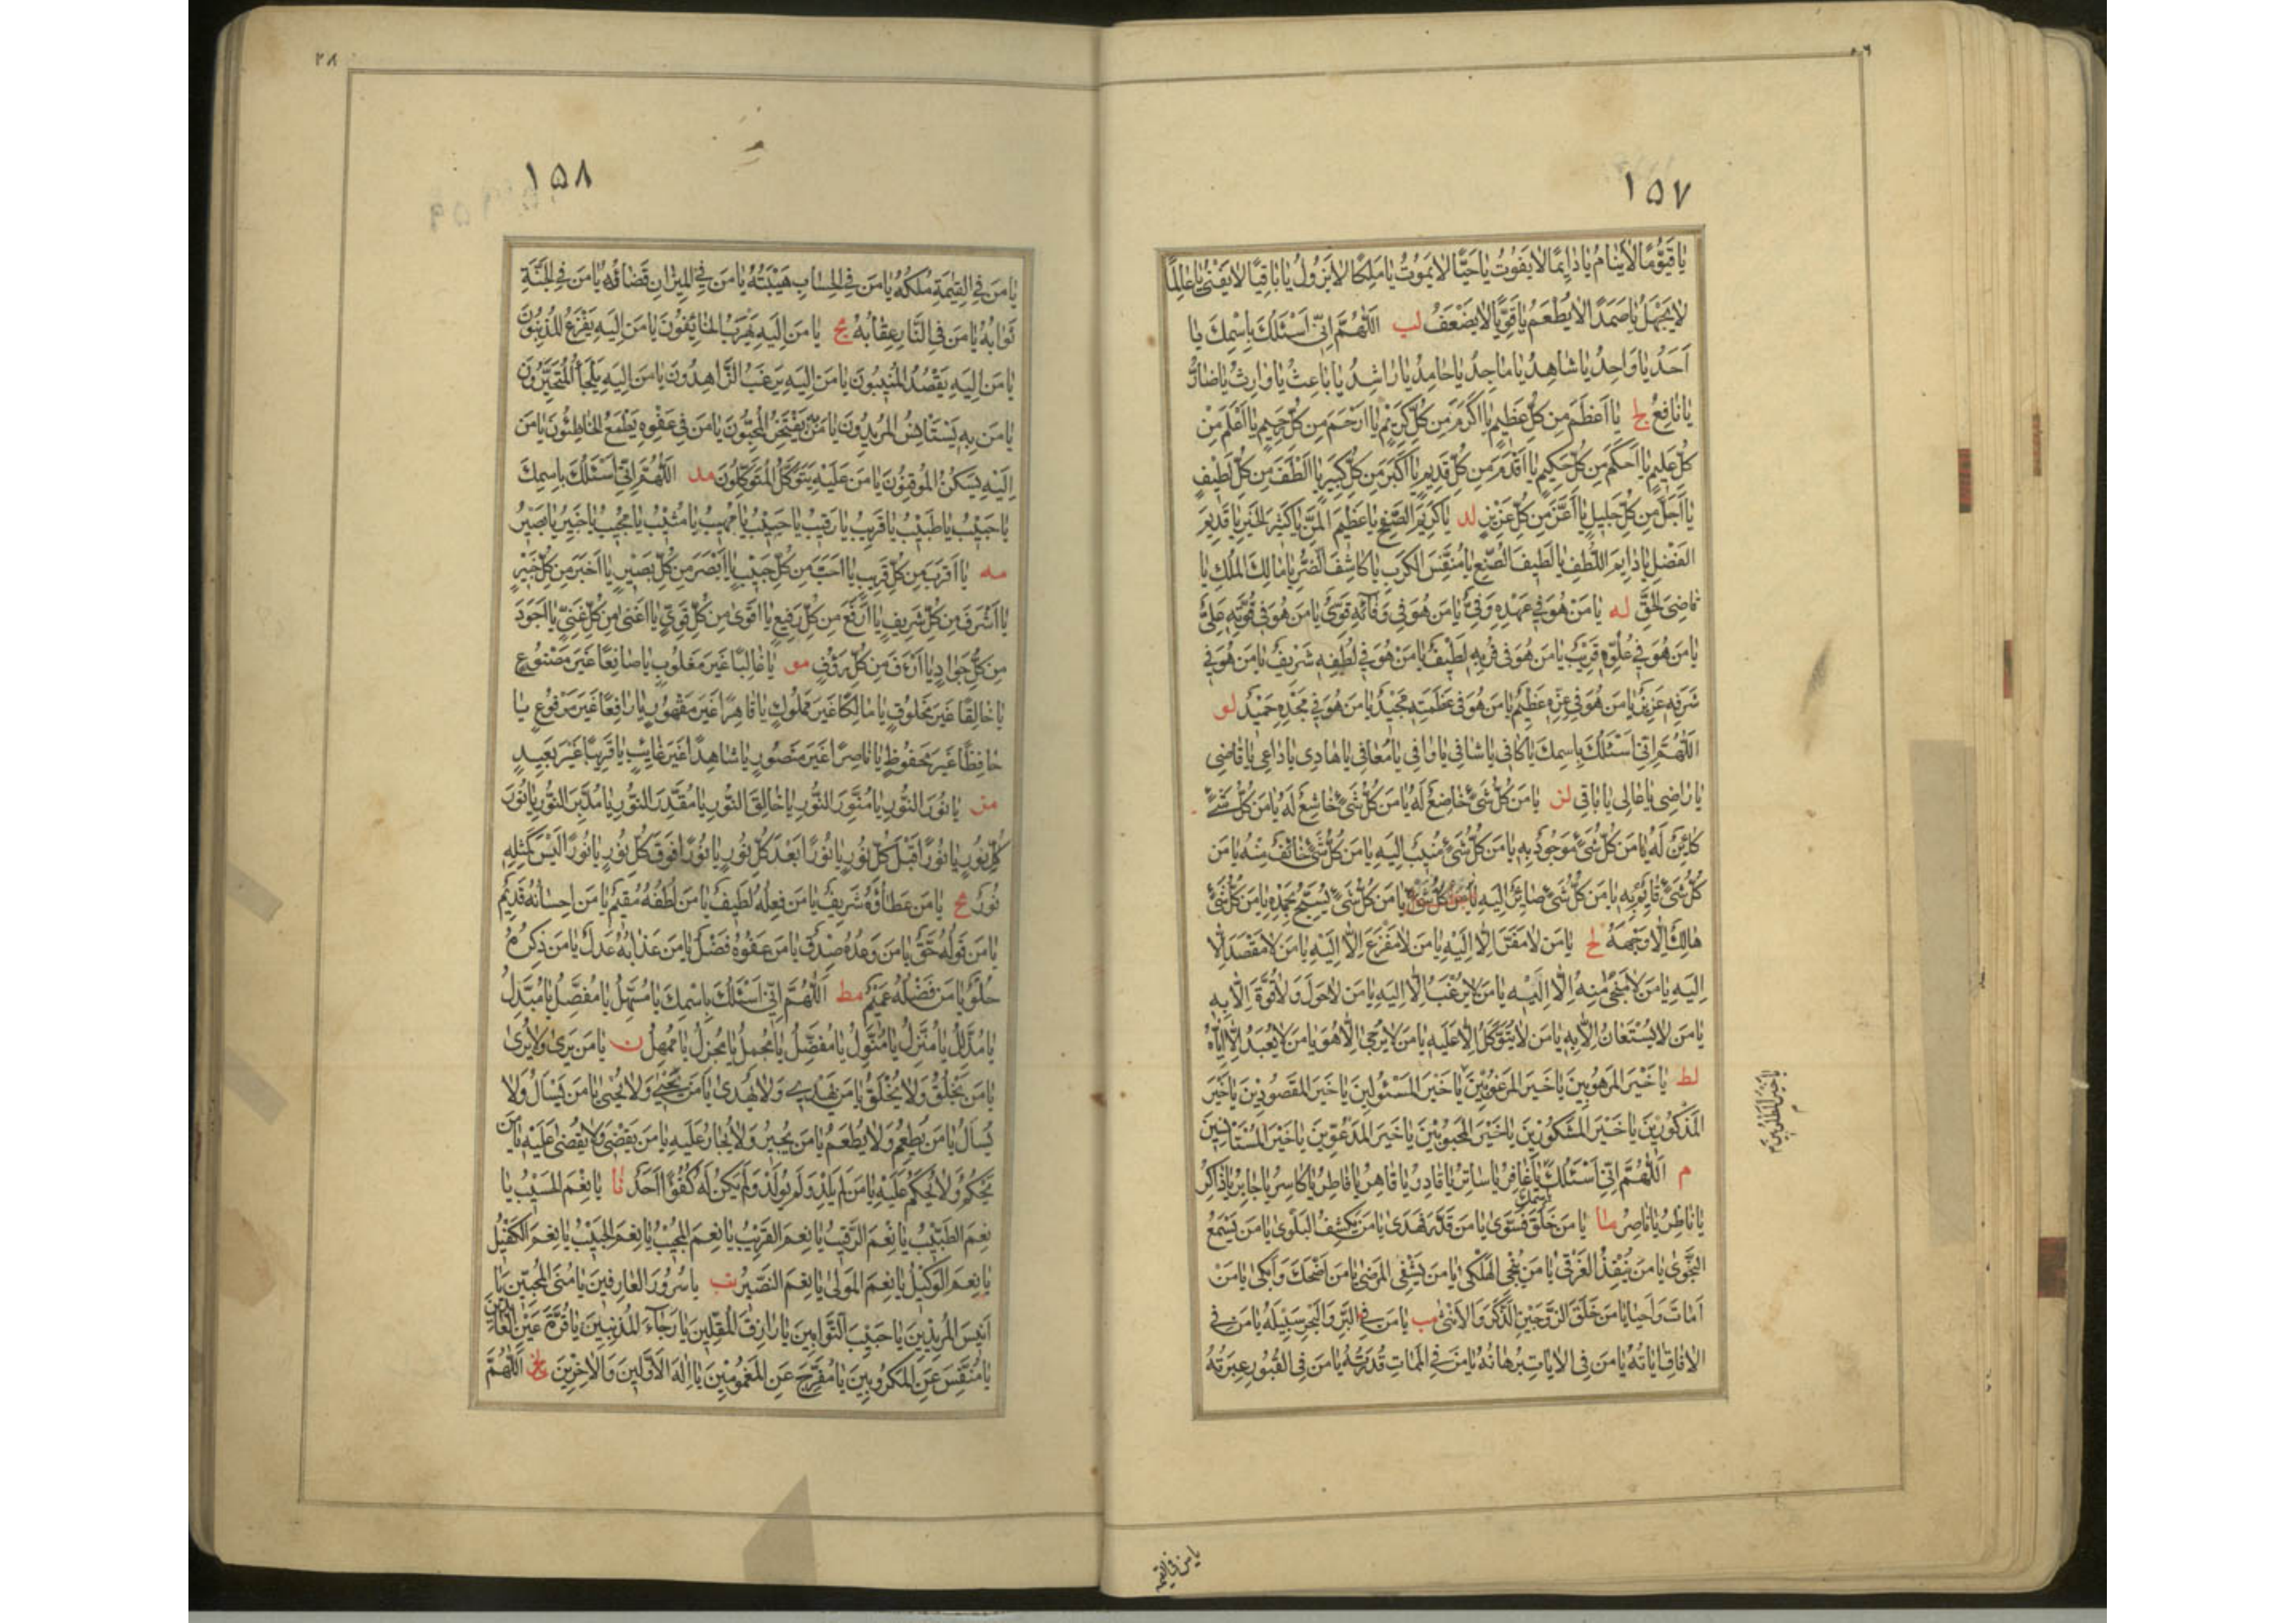 ١٥٧
يَا قَيُّومًا لَا يَنَامُ يَا دَائِمًا لَا يَفُوتُ يَا حَيًّا لَا يَمُوتُ يَا مَلِكًا لَا يَزُولُ يَا بَاقِيًا لَا يَفْنَى يَا عَالِمًا
لَا يَجْهَلُ يَا صَمَدًا لَا يُطْعَمُ يَا قَوِيًّا لَا يَضْعَفُ لب اَللّٰهُمَّ اِنِّي اَسْئَلُكَ بِاسْمِكَ يَا
اَحَدُ يَا وَاحِدُ يَا شَاهِدُ يَا مَاجِدُ يَا حَامِدُ يَا رَاشِدُ يَا بَاعِثُ يَا وَارِثُ يَا ضَارُّ
يَا نَافِعُ لج يَا اَعْظَمَ مِنْ كُلِّ عَظِيمٍ يَا اَكْرَمَ مِنْ كُلِّ كَرِيمٍ يَا اَرْحَمَ مِنْ كُلِّ رَحِيمٍ يَا اَعْلَمَ مِنْ
كُلِّ عَلِيمٍ يَا اَحْكَمَ مِنْ كُلِّ حَكِيمٍ يَا اَقْدَمَ مِنْ كُلِّ قَدِيمٍ يَا اَكْبَرَ مِنْ كُلِّ كَبِيرٍ يَا اَلْطَفَ مِنْ كُلِّ لَطِيفٍ
يَا اَجَلَّ مِنْ كُلِّ جَلِيلٍ يَا اَعَزَّ مِنْ كُلِّ عَزِيزٍ لد يَا كَرِيمَ الصَّفْحِ يَا عَظِيمَ الْمَنِّ يَا كَثِيرَ الْخَيْرِ يَا قَدِيمَ
الْفَضْلِ يَا دَايِمَ اللُّطْفِ يَا لَطِيفَ الصُّنْعِ يَا مُنَفِّسَ الْكَرْبِ يَا كَاشِفَ الضُّرِّ يَا مَالِكَ الْمُلْكِ يَا
قَاضِيَ الْحَقِّ له يَا مَنْ هُوَ فِي عَهْدِهِ وَفِيٌّ يَا مَنْ هُوَ فِي وَفَائِهِ قَوِيٌّ يَا مَنْ هُوَ فِي قُوَّتِهِ عَلِيٌّ
يَا مَنْ هُوَ فِي عُلُوِّهِ قَرِيبٌ يَا مَنْ هُوَ فِي قُرْبِهِ لَطِيفٌ يَا مَنْ هُوَ فِي لُطْفِهِ شَرِيفٌ يَا مَنْ هُوَ فِي
شَرَفِهِ عَزِيزٌ يَا مَنْ هُوَ فِي عِزِّهِ عَظِيمٌ يَا مَنْ هُوَ فِي عَظَمَتِهِ مَجِيدٌ يَا مَنْ هُوَ فِي مَجْدِهِ حَمِيدٌ لو
اَللّٰهُمَّ اِنِّي اَسْئَلُكَ بِاسْمِكَ يَا كَافِي يَا شَافِي يَا وَافِي يَا مُعَافِي يَا هَادِي يَا دَاعِي يَا قَاضِي
يَا رَاضِي يَا عَالِي يَا بَاقِي لز يَا مَنْ كُلُّ شَيْءٍ خَاضِعٌ لَهُ يَا مَنْ كُلُّ شَيْءٍ خَاشِعٌ لَهُ يَا مَنْ كُلُّ شَيْءٍ
كَائِنٌ لَهُ يَا مَنْ كُلُّ شَيْءٍ مَوْجُودٌ بِهِ يَا مَنْ كُلُّ شَيْءٍ مُنِيبٌ اِلَيْهِ يَا مَنْ كُلُّ شَيْءٍ خَائِفٌ مِنْهُ يَا مَنْ
كُلُّ شَيْءٍ قَائِمٌ بِهِ يَا مَنْ كُلُّ شَيْءٍ صَائِرٌ اِلَيْهِ يَا مَنْ كُلُّ شَيْءٍ يَا مَنْ كُلُّ شَيْءٍ يُسَبِّحُ بِحَمْدِهِ يَا مَنْ كُلُّ شَيْءٍ
هَالِكٌ اِلَّا وَجْهَهُ لح يَا مَنْ لَا مَفَرَّ اِلَّا اِلَيْهِ يَا مَنْ لَا مَفْزَعَ اِلَّا اِلَيْهِ يَا مَنْ لَا مَقْصَدَ اِلَّا
اِلَيْهِ يَا مَنْ لَا مَنْجٰى مِنْهُ اِلَّا اِلَيْهِ يَا مَنْ لَا يُرْغَبُ اِلَّا اِلَيْهِ يَا مَنْ لَا حَوْلَ وَلَا قُوَّةَ اِلَّا بِهِ
يَا مَنْ لَا يُسْتَعَانُ اِلَّا بِهِ يَا مَنْ لَا يُتَوَكَّلُ اِلَّا عَلَيْهِ يَا مَنْ لَا يُرْجٰى اِلَّا هُوَ يَا مَنْ لَا يُعْبَدُ اِلَّا اِيَّاهُ
لط يَا خَيْرَ الْمَرْهُوبِينَ يَا خَيْرَ الْمَرْغُوبِينَ يَا خَيْرَ الْمَسْئُولِينَ يَا خَيْرَ الْمَقْصُودِينَ يَا خَيْرَ
الْمَذْكُورِينَ يَا خَيْرَ الْمَشْكُورِينَ يَا خَيْرَ الْمَحْبُوبِينَ يَا خَيْرَ الْمَدْعُوِّينَ يَا خَيْرَ الْمُسْتَأْنِسِينَ
يا خَيْرَ المَطْلُوبِينَ
م اَللّٰهُمَّ اِنِّي اَسْئَلُكَ بِاسْمِكَ يَا غَافِرُ يَا سَاتِرُ يَا قَادِرُ يَا قَاهِرُ يَا فَاطِرُ يَا كَاسِرُ يَا جَابِرُ يَا ذَاكِرُ
يَا نَاظِرُ يَا نَاصِرُ ما يَا مَنْ خَلَقَ فَسَوّٰى يَا مَنْ قَدَّرَ فَهَدٰى يَا مَنْ يَكْشِفُ الْبَلْوٰى يَا مَنْ يَسْمَعُ
النَّجْوٰى يَا مَنْ يُنْقِذُ الْغَرْقٰى يَا مَنْ يُنْجِي الْهَلْكٰى يَا مَنْ يَشْفِي الْمَرْضٰى يَا مَنْ اَضْحَكَ وَاَبْكٰى يَا مَنْ
اَمَاتَ وَاَحْيَا يَا مَنْ خَلَقَ الزَّوْجَيْنِ الذَّكَرَ وَالْاُنْثٰى مب يَا مَنْ فِي الْبَرِّ وَالْبَحْرِ سَبِيلُهُ يَا مَنْ فِي
الْاٰفَاقِ اٰيَاتُهُ يَا مَنْ فِي الْاٰيَاتِ بُرْهَانُهُ يَا مَنْ فِي الْمَمَاتِ قُدْرَتُهُ يَا مَنْ فِي الْقُبُورِ عِبْرَتُهُ
يا من في القيمة
٢٨
١٥٨
يَا مَنْ فِي الْقِيٰمَةِ مُلْكُهُ يَا مَنْ فِي الْحِسَابِ هَيْبَتُهُ يَا مَنْ فِي الْمِيزَانِ قَضَاؤُهُ يَا مَنْ فِي الْجَنَّةِ
ثَوَابُهُ يَا مَنْ فِي النَّارِ عِقَابُهُ مج يَا مَنْ اِلَيْهِ يَهْرَبُ الْخَائِفُونَ يَا مَنْ اِلَيْهِ يَفْزَعُ الْمُذْنِبُونَ
يَا مَنْ اِلَيْهِ يَقْصُدُ الْمُنِيبُونَ يَا مَنْ اِلَيْهِ يَرْغَبُ الزَّاهِدُونَ يَا مَنْ اِلَيْهِ يَلْجَأُ الْمُتَحَيِّرُونَ
يَا مَنْ بِهِ يَسْتَأْنِسُ الْمُرِيدُونَ يَا مَنْ بِهِ يَفْتَخِرُ الْمُحِبُّونَ يَا مَنْ فِي عَفْوِهِ يَطْمَعُ الْخَاطِئُونَ يَا مَنْ
اِلَيْهِ يَسْكُنُ الْمُوقِنُونَ يَا مَنْ عَلَيْهِ يَتَوَكَّلُ الْمُتَوَكِّلُونَ مد اَللّٰهُمَّ اِنِّي اَسْئَلُكَ بِاسْمِكَ
يَا حَبِيبُ يَا طَبِيبُ يَا قَرِيبُ يَا رَقِيبُ يَا حَسِيبُ يَا مُهِيبُ يَا مُثِيبُ يَا مُجِيبُ يَا خَبِيرُ يَا بَصِيرُ
مه يَا اَقْرَبَ مِنْ كُلِّ قَرِيبٍ يَا اَحَبَّ مِنْ كُلِّ حَبِيبٍ يَا اَبْصَرَ مِنْ كُلِّ بَصِيرٍ يَا اَخْبَرَ مِنْ كُلِّ خَبِيرٍ
يَا اَشْرَفَ مِنْ كُلِّ شَرِيفٍ يَا اَرْفَعَ مِنْ كُلِّ رَفِيعٍ يَا اَقْوٰى مِنْ كُلِّ قَوِيٍّ يَا اَغْنٰى مِنْ كُلِّ غَنِيٍّ يَا اَجْوَدَ
مِنْ كُلِّ جَوَادٍ يَا اَرْءَفَ مِنْ كُلِّ رَؤُفٍ مو يَا غَالِبًا غَيْرَ مَغْلُوبٍ يَا صَانِعًا غَيْرَ مَصْنُوعٍ
يَا خَالِقًا غَيْرَ مَخْلُوقٍ يَا مَالِكًا غَيْرَ مَمْلُوكٍ يَا قَاهِرًا غَيْرَ مَقْهُورٍ يَا رَافِعًا غَيْرَ مَرْفُوعٍ يَا
حَافِظًا غَيْرَ مَحْفُوظٍ يَا نَاصِرًا غَيْرَ مَنْصُورٍ يَا شَاهِدًا غَيْرَ غَايِبٍ يَا قَرِيبًا غَيْرَ بَعِيدٍ
مز يَا نُورَ النُّورِ يَا مُنَوِّرَ النُّورِ يَا خَالِقَ النُّورِ يَا مُقَدِّرَ النُّورِ يَا مُدَبِّرَ النُّورِ يَا نُورَ
كُلِّ نُورٍ يَا نُورًا قَبْلَ كُلِّ نُورٍ يَا نُورًا بَعْدَ كُلِّ نُورٍ يَا نُورًا فَوْقَ كُلِّ نُورٍ يَا نُورًا لَيْسَ كَمِثْلِهِ
نُورٌ مح يَا مَنْ عَطَاؤُهُ شَرِيفٌ يَا مَنْ فِعْلُهُ لَطِيفٌ يَا مَنْ لُطْفُهُ مُقِيمٌ يَا مَنْ اِحْسَانُهُ قَدِيمٌ
يَا مَنْ قَوْلُهُ حَقٌّ يَا مَنْ وَعْدُهُ صِدْقٌ يَا مَنْ عَفْوُهُ فَضْلٌ يَا مَنْ عَذَابُهُ عَدْلٌ يَا مَنْ ذِكْرُهُ
حُلْوٌ يَا مَنْ فَضْلُهُ عَمِيمٌ مط اَللّٰهُمَّ اِنِّي اَسْئَلُكَ بِاسْمِكَ يَا مُسَهِّلُ يَا مُفَصِّلُ يَا مُبَدِّلُ
يَا مُذَلِّلُ يَا مُنَزِّلُ يَا مُنَوِّلُ يَا مُفْضِلُ يَا مُجْمِلُ يَا مُجْزِلُ يَا مُمْهِلُ ن يَا مَنْ يَرٰى وَلَا يُرٰى
يَا مَنْ يَخْلُقُ وَلَا يُخْلَقُ يَا مَنْ يَهْدِي وَلَا يُهْدٰى يَا مَنْ يُحْيِي وَلَا يُحْيٰى يَا مَنْ يَسْأَلُ وَلَا
يُسْأَلُ يَا مَنْ يُطْعِمُ وَلَا يُطْعَمُ يَا مَنْ يُجِيرُ وَلَا يُجَارُ عَلَيْهِ يَا مَنْ يَقْضِي وَلَا يُقْضٰى عَلَيْهِ يَا مَنْ
يَحْكُمُ وَلَا يُحْكَمُ عَلَيْهِ يَا مَنْ لَمْ يَلِدْ وَلَمْ يُولَدْ وَلَمْ يَكُنْ لَهُ كُفُوًا اَحَدٌ نا يَا نِعْمَ الْحَسِيبُ يَا
نِعْمَ الطَّبِيبُ يَا نِعْمَ الرَّقِيبُ يَا نِعْمَ الْقَرِيبُ يَا نِعْمَ الْمُجِيبُ يَا نِعْمَ الْحَبِيبُ يَا نِعْمَ الْكَفِيلُ
يَا نِعْمَ الْوَكِيلُ يَا نِعْمَ الْمَوْلٰى يَا نِعْمَ النَّصِيرُ نب يَا سُرُورَ الْعَارِفِينَ يَا مُنَى الْمُحِبِّينَ يَا
اَنِيسَ الْمُرِيدِينَ يَا حَبِيبَ التَّوَّابِينَ يَا رَازِقَ الْمُقِلِّينَ يَا رَجَاءَ الْمُذْنِبِينَ يَا قُرَّةَ عَيْنِ الْعَابِدِينَ
يَا مُنَفِّسَ عَنِ الْمَكْرُوبِينَ يَا مُفَرِّجَ عَنِ الْمَغْمُومِينَ يَا اِلٰهَ الْاَوَّلِينَ وَالْاٰخِرِينَ نج اَللّٰهُمَّ